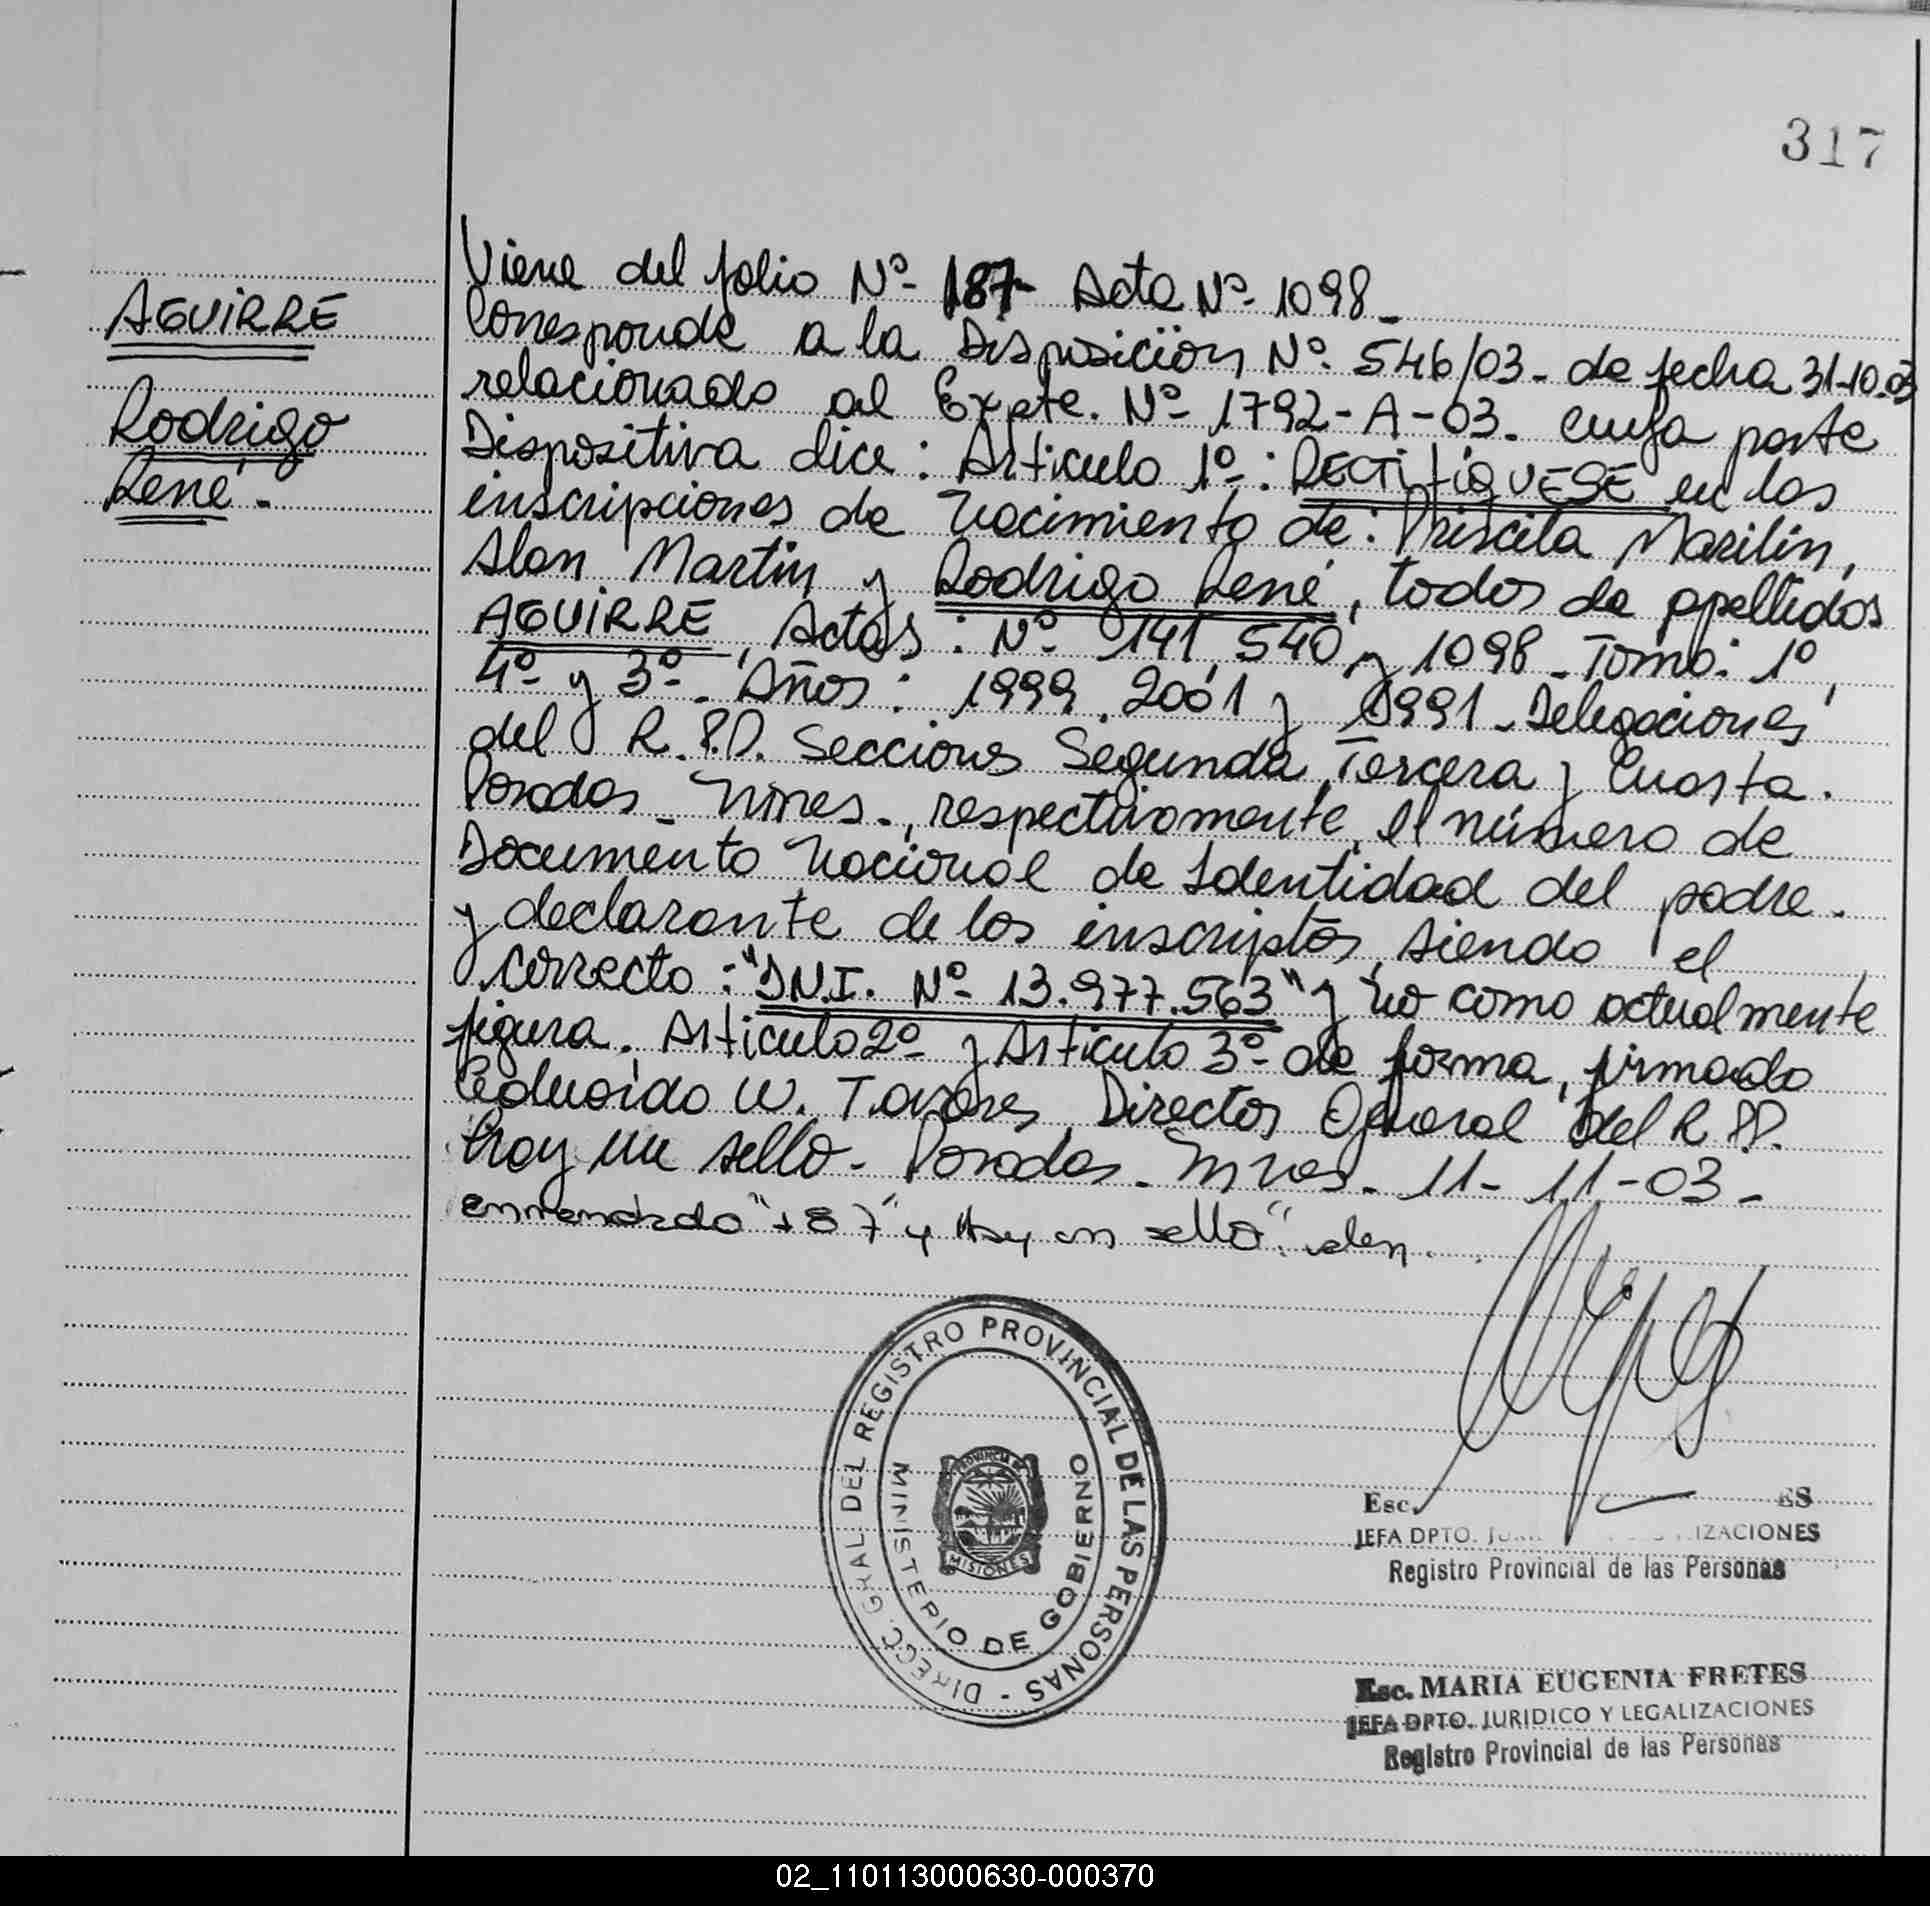 317
AGUIRRE
Rodrigo
René.
Viene del folio Nº 187- Acta Nº 1098.
Corresponde a la Disposición Nº 546/03- de fecha 31-10-03
relacionado al Expte. Nº 1792-A-03. cuya parte
Dispositiva dice: Artículo 1º: RECTIFIQUESE en las
inscripciones de Nacimiento de: Priscila Marilin,
Alan Martin y Rodrigo René, todos de apellidos
AGUIRRE, Actas: Nº 141, 540 y 1098- Tomo: 1º,
4º y 3º. Años: 1999, 2001 y 1991- Delegaciones
del R.P.P. Secciones Segunda, Tercera y Cuarta.
Posadas- Mnes., respectivamente, el número de
Documento Nacional de Identidad del padre.
y declarante de los inscriptos, siendo el
correcto: "D.N.I. Nº 13.977.563" y no como actualmente
figura. Artículo 2º y Artículo 3º de forma, firmado
Eduardo W. Tavares Director General del R.P.P.
Hay un sello- Posadas- Mnes- 11-11-03-
enmendado "187" y "Hay un sello". valen.
DIRECC. GRAL DEL REGISTRO PROVINCIAL DE LAS PERSONAS -
MINISTERIO DE GOBIERNO
PROVINCIA DE
MISIONES
Esc. ES
JEFA DPTO. IZACIONES
Registro Provincial de las Personas
Esc. MARIA EUGENIA FRETES
JEFA DPTO. JURIDICO Y LEGALIZACIONES
Registro Provincial de las Personas
02_110113000630-000370